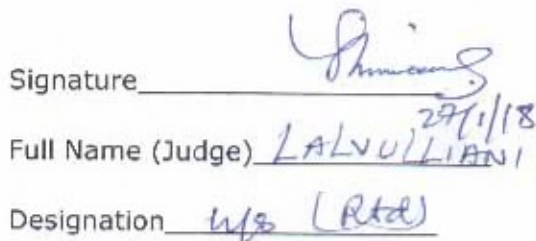 Signature
27/1/18
Full Name (Judge) LALVULLIANI
Designation u/s (Rtd)